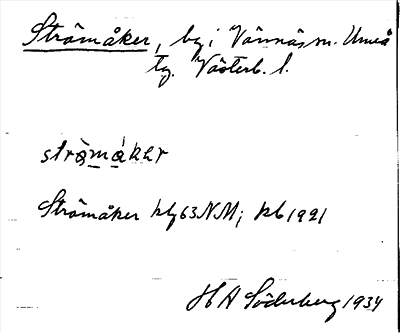 Strömåker, by i Vännäs sn. Umeå
tg. Västerb. l.
strö̀mǻkər
Strömåker kbl 63 NM; kb 1921
H A Söderberg 1934